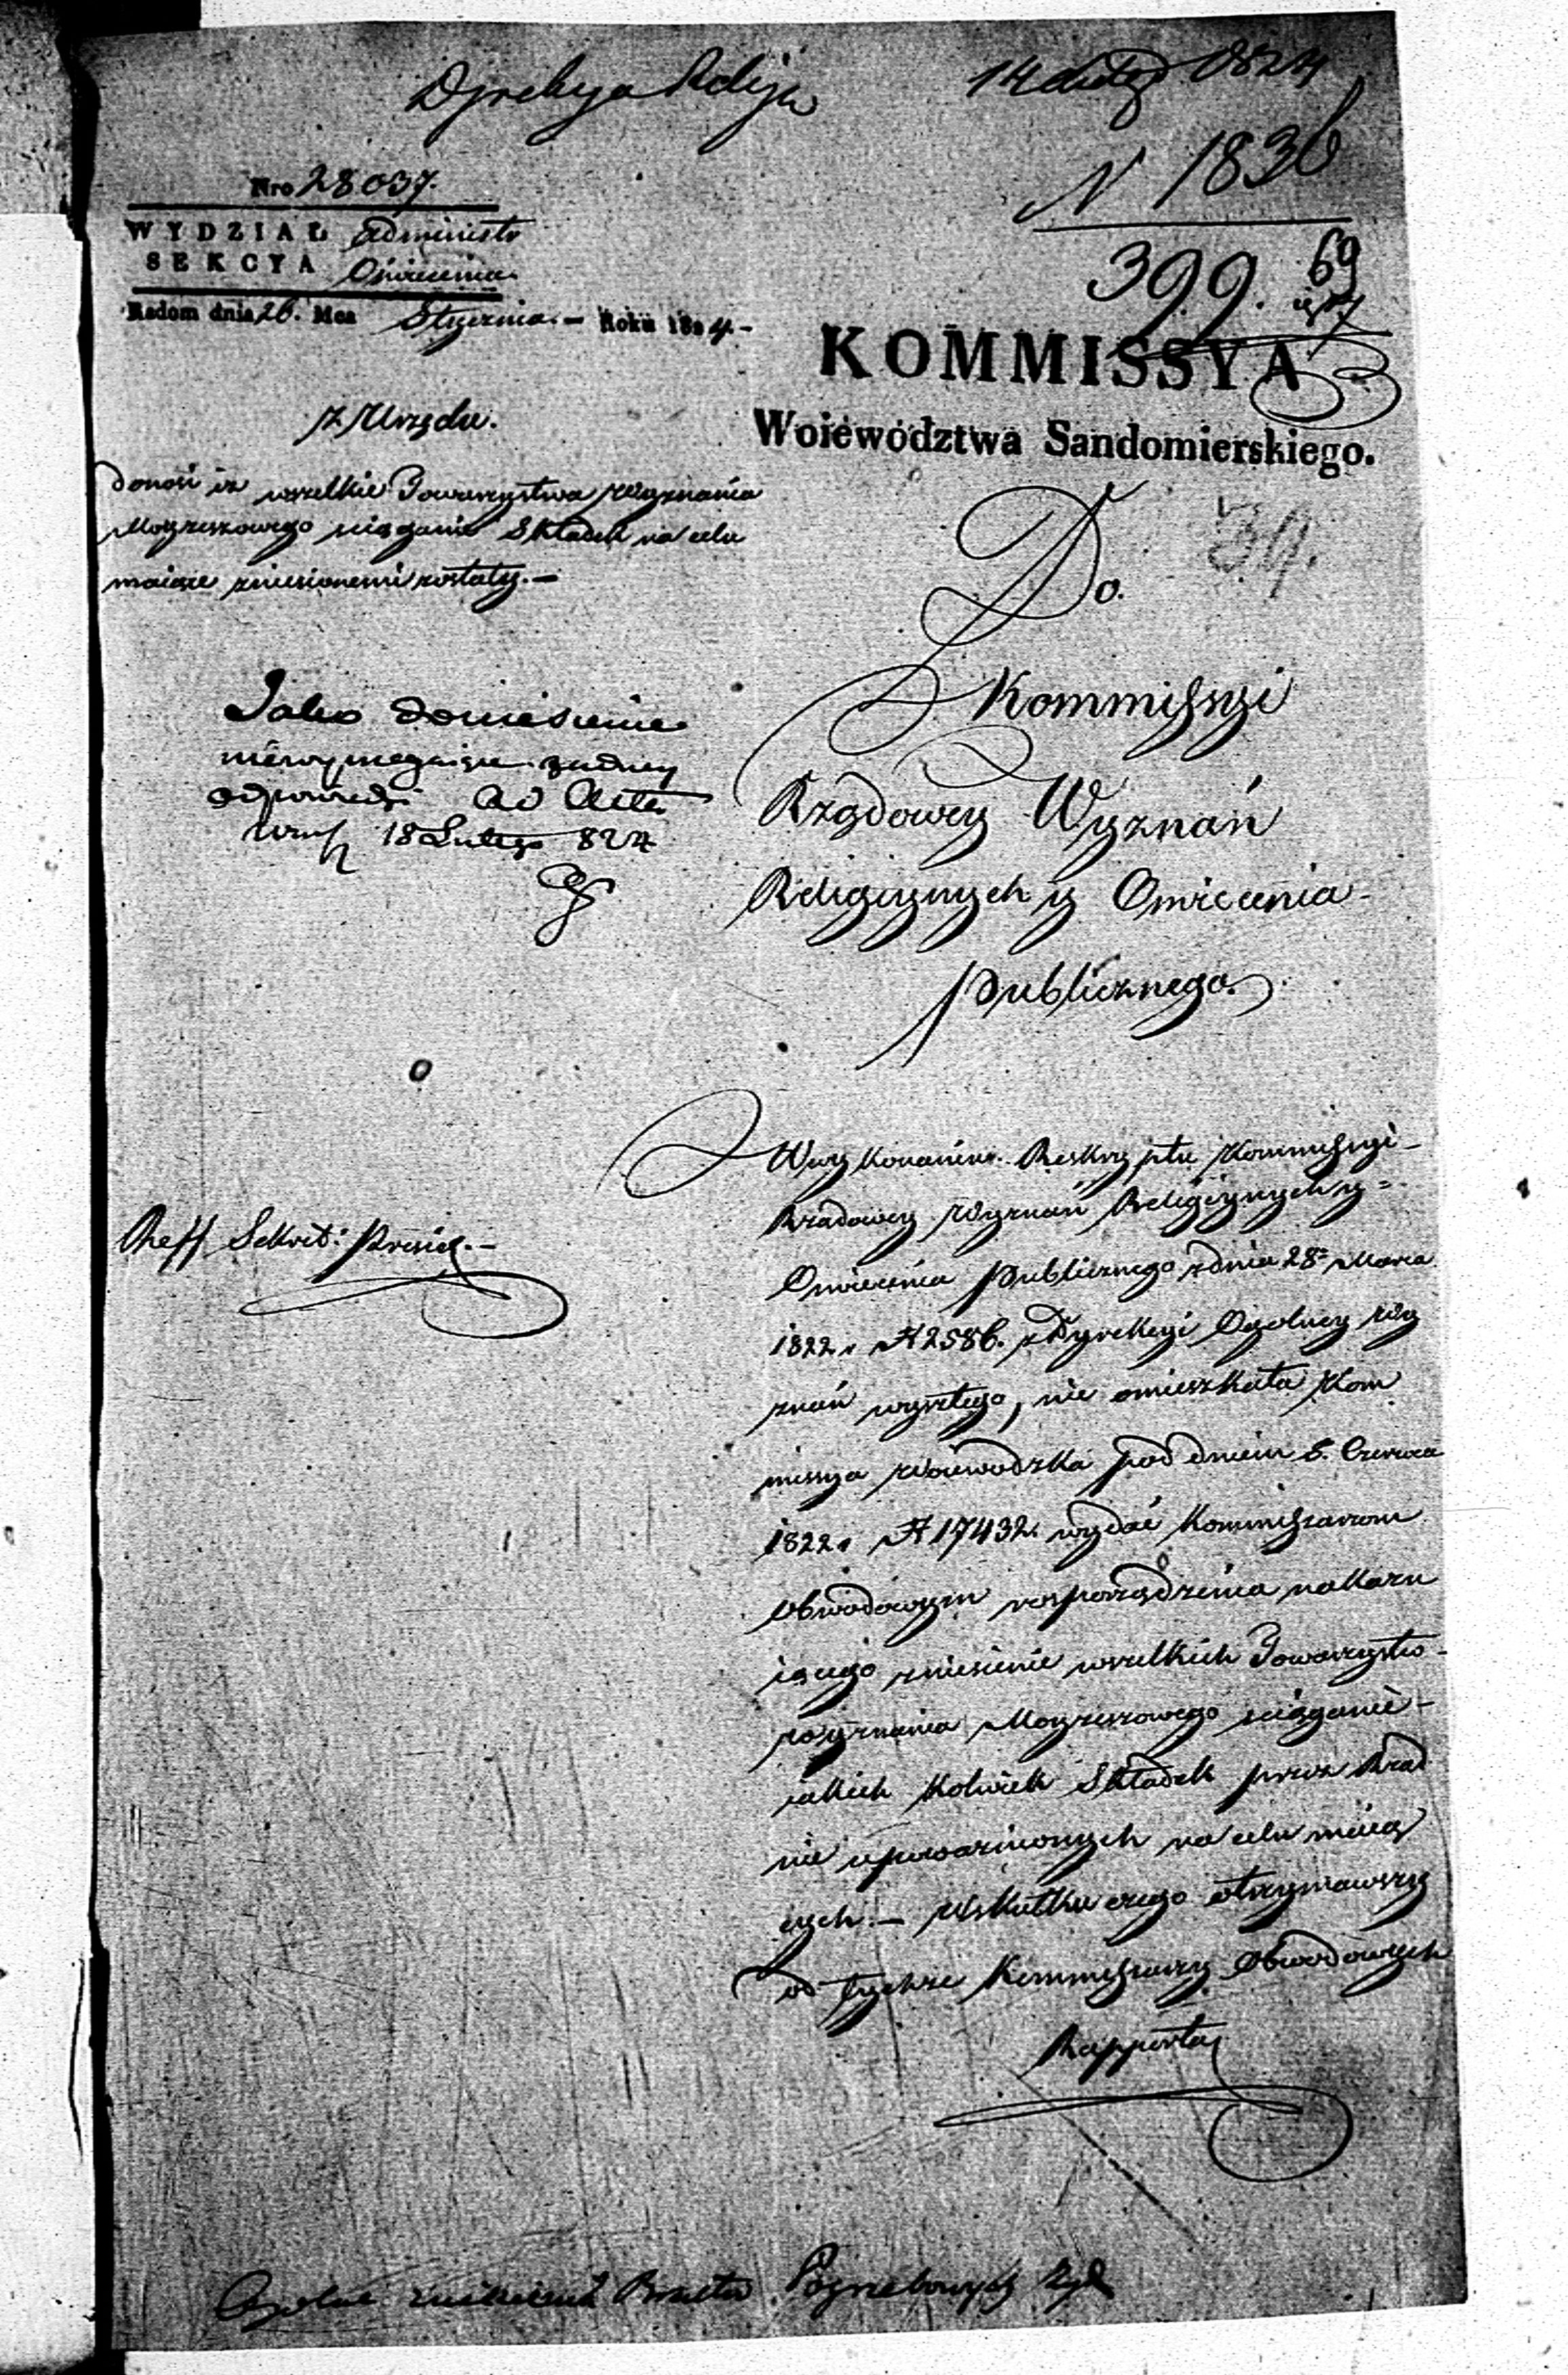 Dyrekcya Religij
14 Lutego 1824
N 1836
399. 69
Nro 28037.
WYDZIAŁ Administr
SEKCYA Oświecenia.
Radom dnia 26. Mca Stycznia. – Roku 1824. –
KOMMISSYA
Woiewództwa Sandomierskiego.
z Urzędu.
donosi iż wszelkie Towarzystwa Wyznania
Moyżeszowego ściąganie Składek na celu
maiące zniesionemi zostały. –
34.
Do.
Kommissyi
Rządowey Wyznań
Religiynych y Oświecenia
Publicznego.
Jako doniesienie
niewymagaiące żadney
odpowiedzi Ad Acta
Warsz 18 Lutego 824
W wykonaniu Reskryptu Kommissyi
Rządowey Wyznań Religiynych y
Oświecenia Publicznego z dnia 28 Marca
1822 r N 2586. z Dyrekcyi Ogolney Wy
znań wyszłego, nie omieszkała Kom
missya Woiewodzka pod dniem 5. Czerwca
1822 r N 17432. wydać Kommissarzom
Obwodowym rozporządzenia nakazu
iącego zniesienie wszelkich Towarzystw
wyznania Moyżeszowego ściąganie
iakich kolwiek Składek przez Rząd
nie upoważnionych na celu maiąc
cych. – W skutku czego otrzymawszy
od tychże Kommissarzy Obwodowych
Rapporta
Reff Sekret: Prezid. –
Ogolne zniesienie Bractw Pogrzebowych Żyd